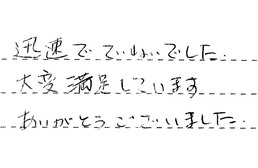 迅速でていねいでした.
大変満足しています
ありがとうございました.